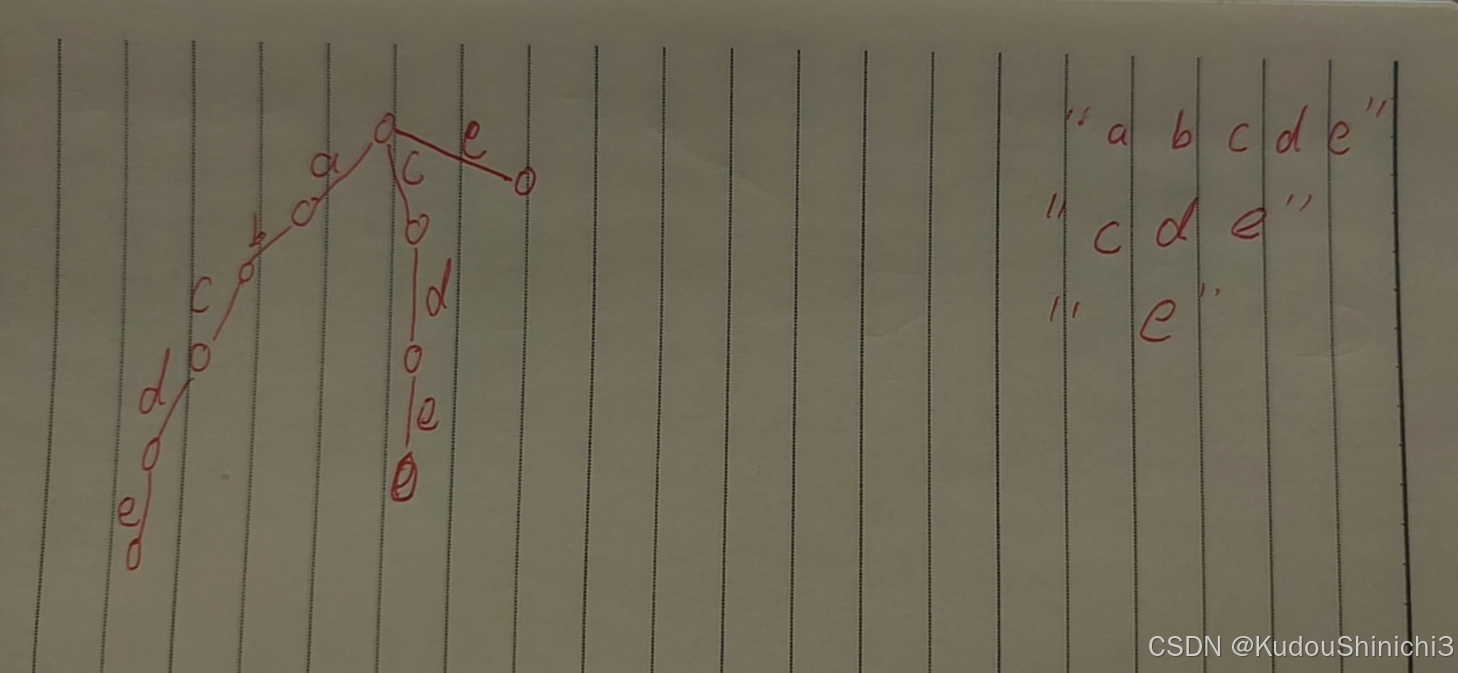 a
e
c
b
c
d
d
e
e
"a b c d e"
"c d e"
"e"
CSDN @KudouShinichi3